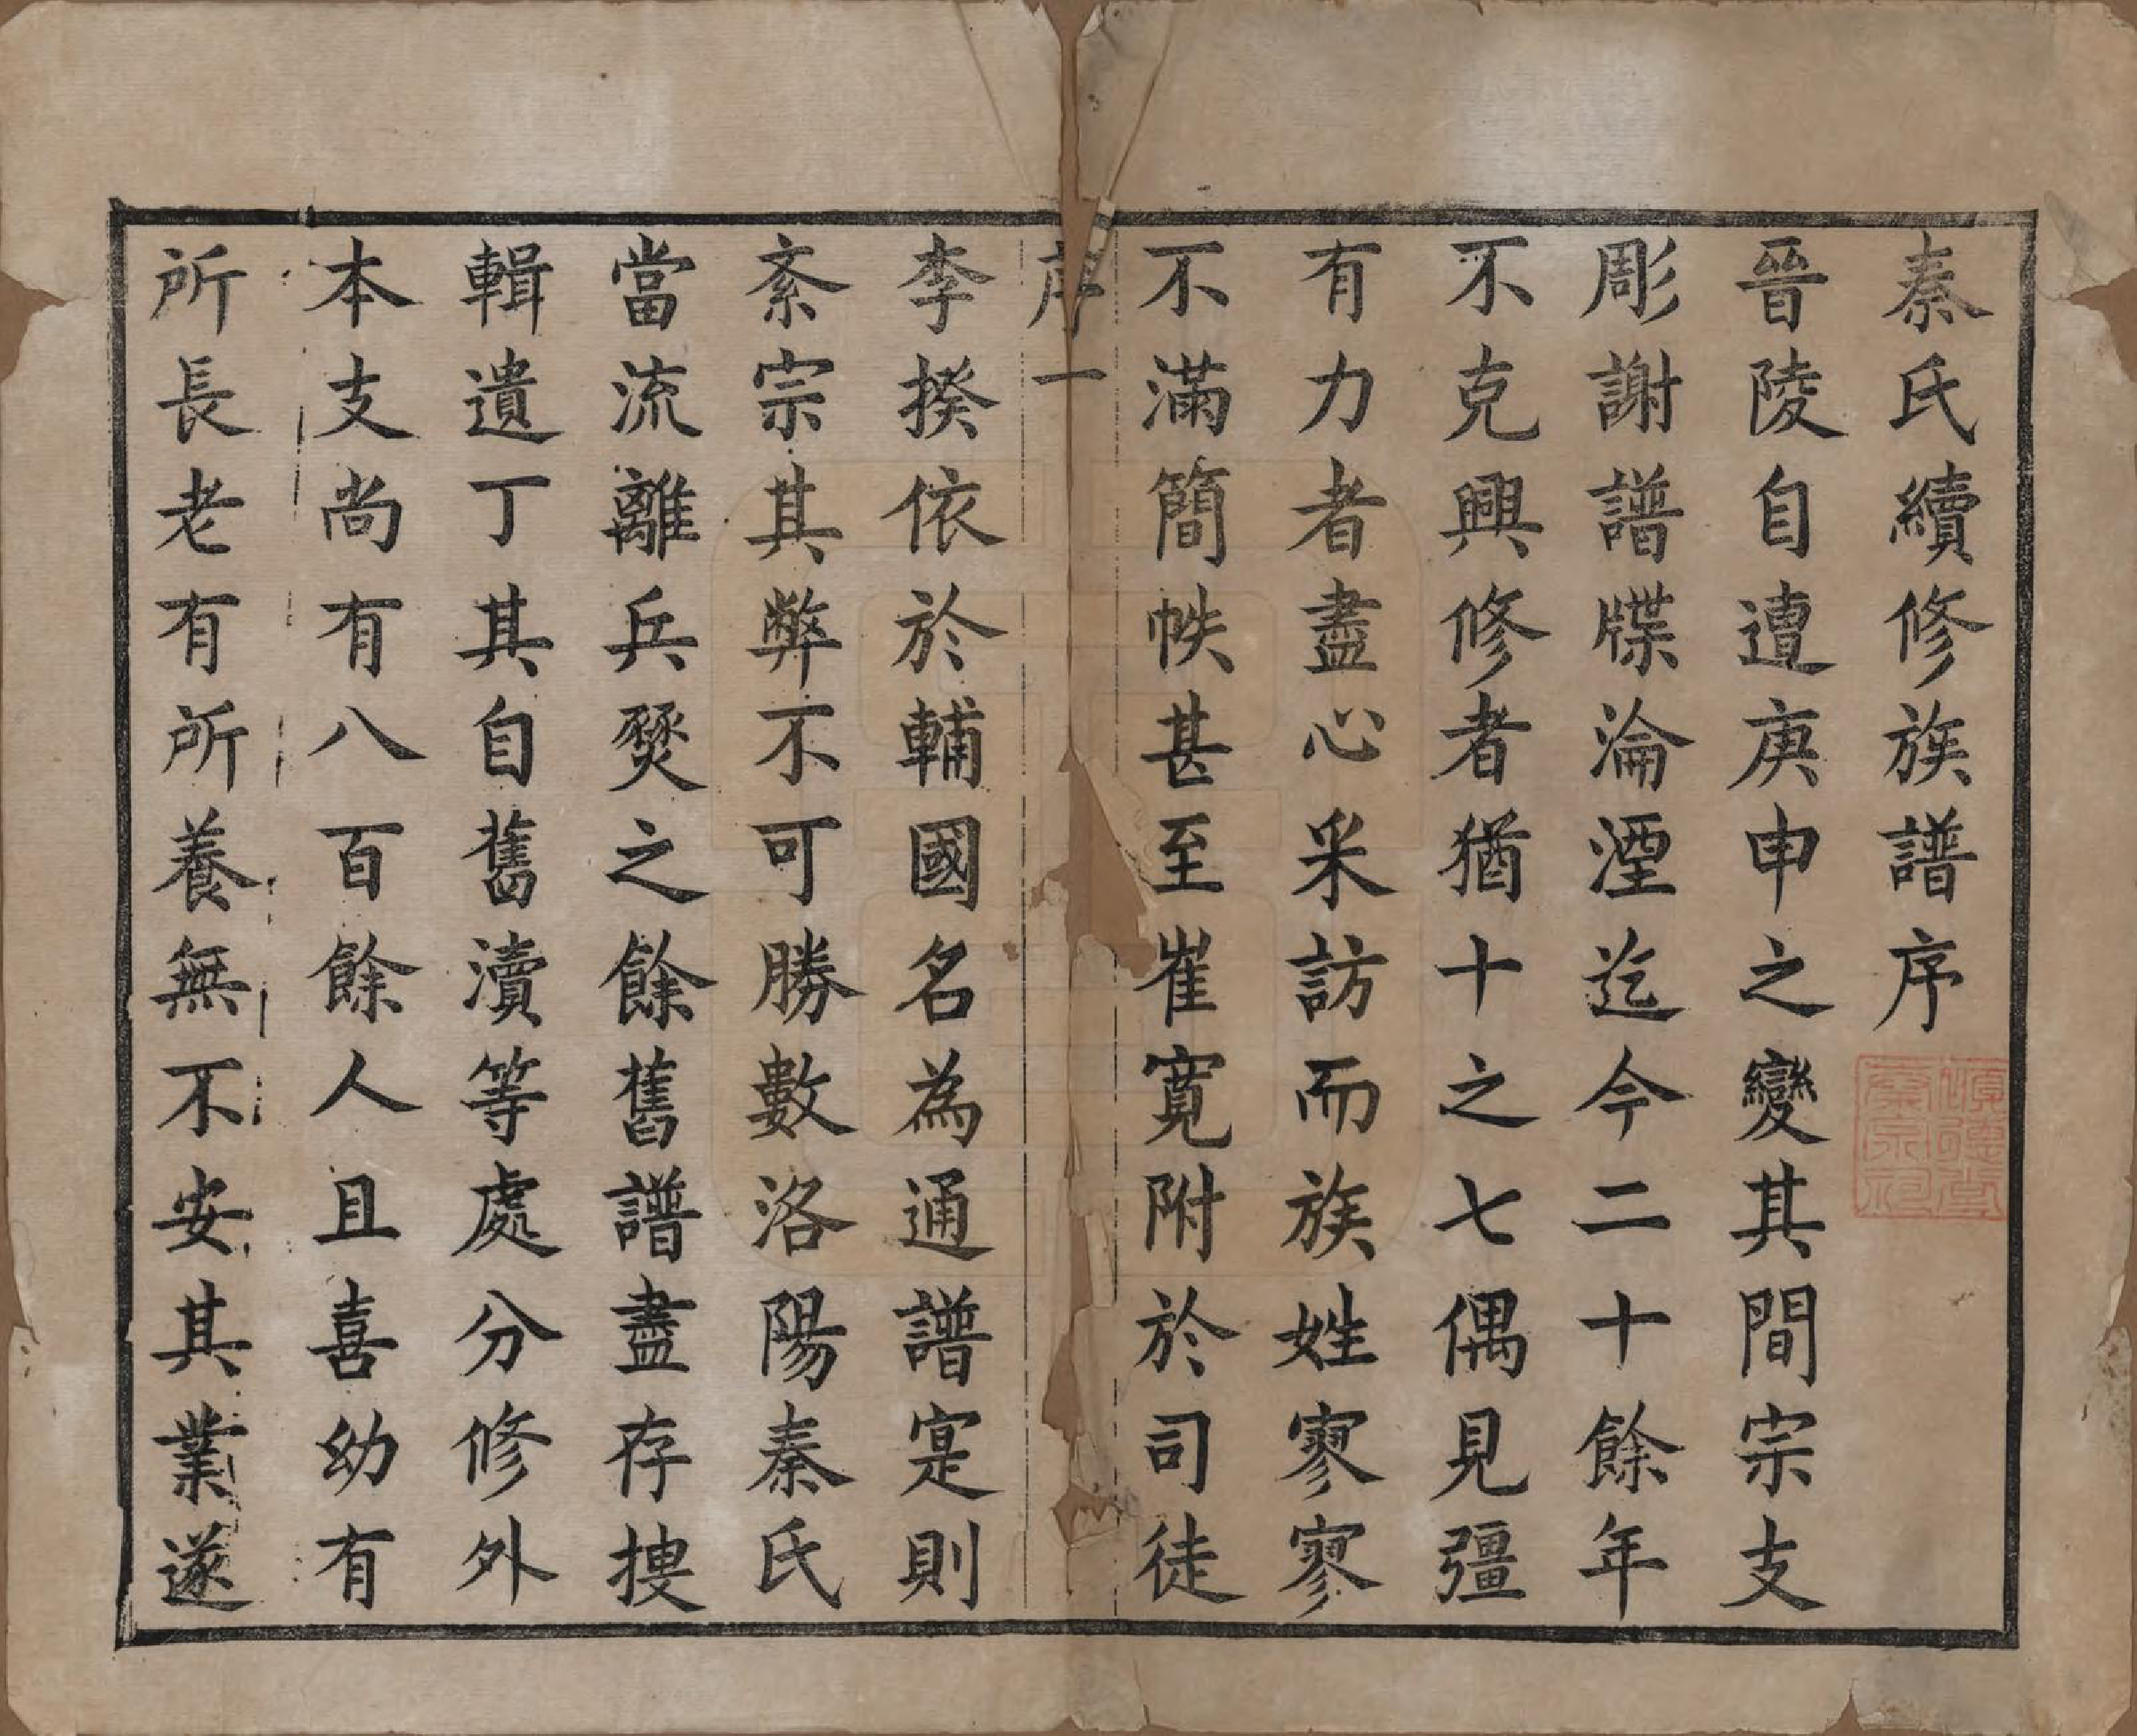 秦氏續修族譜序
晉陵自遭庚申之變其間宗支
彫謝譜牒淪湮迄今二十餘年
不克興修者猶十之七偶見彊
有力者盡心采訪而族姓寥寥
不滿簡帙甚至崔寬附於司徒
序一
李揆依於輔國名為通譜寔則
紊宗其弊不可勝數洛陽秦氏
當流離兵燹之餘舊譜盡存搜
輯遺丁其自舊瀆等處分修外
本支尚有八百餘人且喜幼有
所長老有所養無不安其業遂